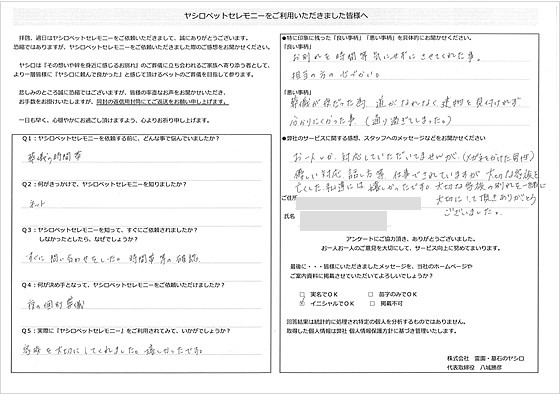 ヤシロペットセレモニーをご利用いただきました皆様へ
拝啓、過日はヤシロペットセレモニーをご依頼いただきまして、誠にありがとうございます。
恐縮ではありますが、ヤシロペットセレモニーをご依頼いただきました際のご感想をお聞かせください。
ヤシロは『その想いや絆を身近に感じるお別れ』のご葬儀に立ち会われるご家族へ寄り添う者として、
より一層皆様に『ヤシロに頼んで良かった』と感じて頂けるペットのご葬儀を目指して参ります。
悲しみのところ誠に恐縮ではございますが、皆様の率直なお声をお聞かせいただき、
お手数をお掛けいたしますが、同封の返信用封筒にてご返送をお願い申し上げます。
一日も早く、心穏やかにお過ごし頂けますよう、心よりお祈り申し上げます。
Q1：ヤシロペットセレモニーを依頼する前に、どんな事で悩んでいましたか？
葬儀の時間帯
Q2：何がきっかけで、ヤシロペットセレモニーを知りましたか？
ネット
Q3：ヤシロペットセレモニーを知って、すぐにご依頼されましたか？
しなかったとしたら、なぜでしょうか？
すぐに問い合わせをした。時間帯等の確認
Q4：何が決め手となって、ヤシロペットセレモニーをご依頼いただけましたか？
個別葬儀
Q5：実際に『ヤシロペットセレモニー』をご利用されてみて、いかがでしょうか？
家族を大切にしてくれました。嬉しかったです。
●特に印象に残った「良い事柄」「悪い事柄」を具体的にお聞かせください
「良い事柄」
お別れを時間等気にせずにさせてくれた事。
担当の方の心づかい。
「悪い事柄」
葬儀が夜だった為 道がなれなく建物を見付けれず
分かりにくかった事（通り過ぎてしまった。）
●弊社のサービスに関する感想、スタッフへのメッセージなどをお聞かせください
お一人が対応していただいていましたが、（メガネをかけた男性）
優しい対応、話し方等 仕事でされていますが大切な家族を
亡くした私達には嬉しかったです。大切な家族の別れを一緒に
大切にして頂きありがとう
ございました。
ご住所
氏名
アンケートにご協力頂き、ありがとうございました。
お一人お一人のご意見を大切にして、サービス向上に努めてまいります。
最後に・・・皆様にいただきましたメッセージを、当社のホームページや
ご案内資料に掲載させていただいてよろしいでしょうか？
□ 実名でOK □ 苗字のみでOK
イニシャルでOK □ 掲載不可
回答結果は統計的に処理され特定の個人を分析するものではありません。
取得した個人情報は弊社 個人情報保護方針に基づき管理いたします。
株式会社 霊園・墓石のヤシロ
代表取締役 八城勝彦